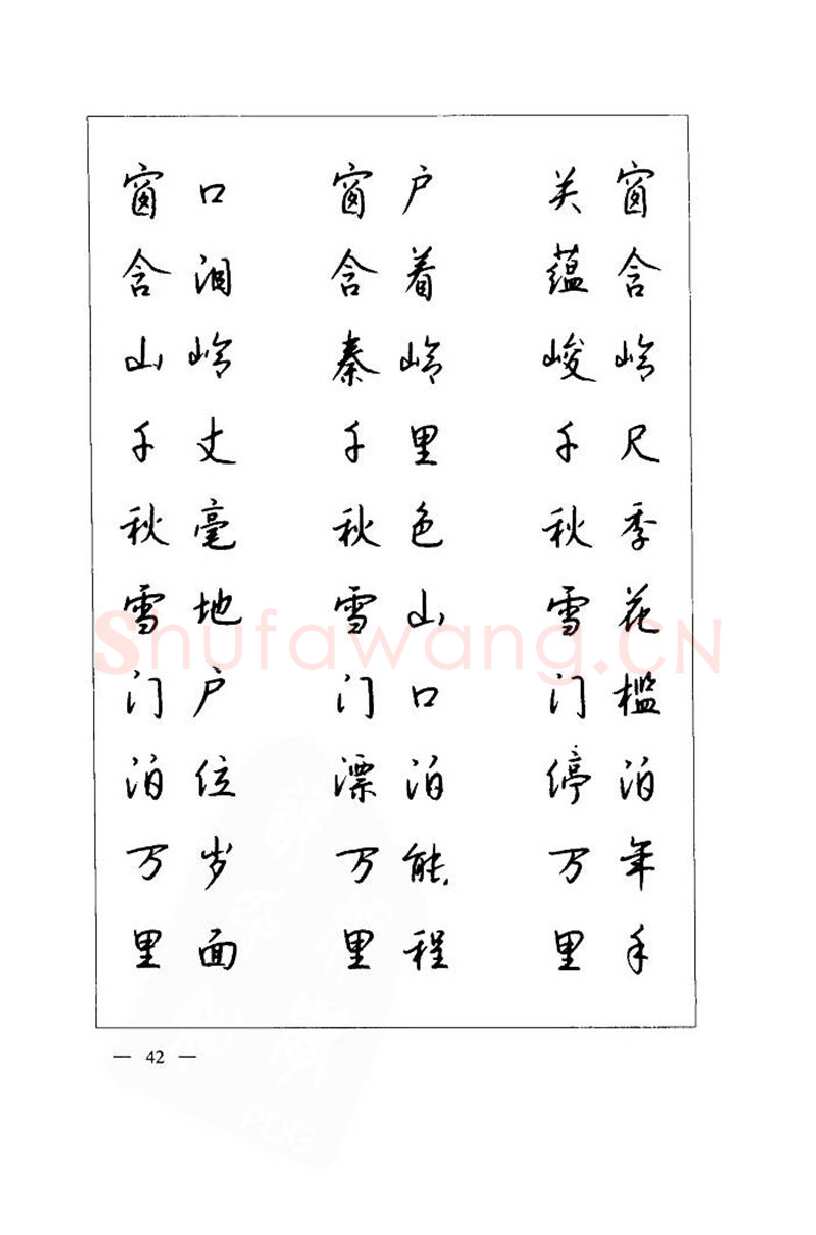 窗口 窗户 关窗
含泪 含着 蕴含
山岭 秦岭 峻岭
千丈 千里 千尺
秋毫 秋色 秋季
雪地 雪山 雪花
门户 门口 门槛
泊位 漂泊 停泊
万岁 万能 万年
里面 里程 里手
— 42 —
Shufawang.CN